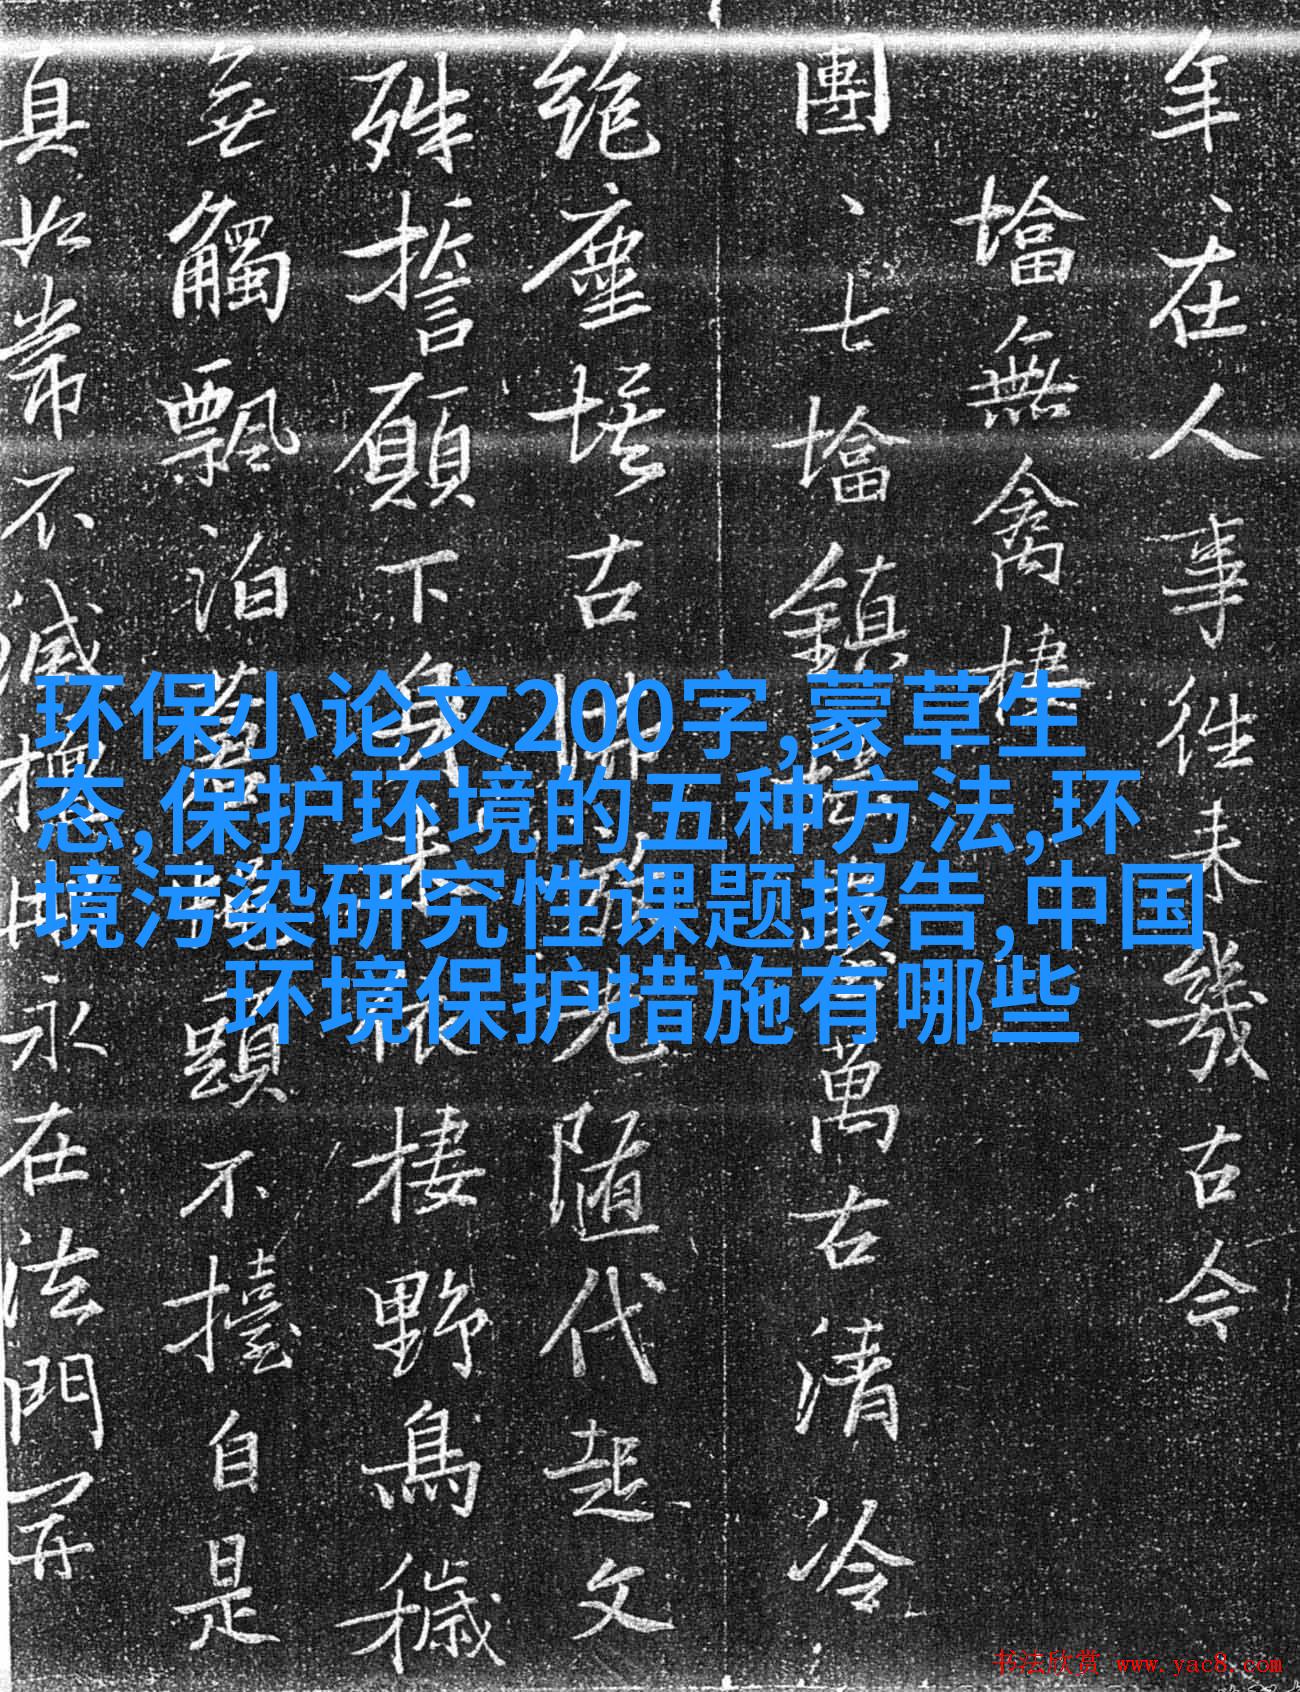 年、在人事往来几古今
墖無禽棲
團、七墖鎮
萬古清冷
绝塵埃古佛
随代起文
殊誓願下身未依棲野鳥穢
無觸飄泊
頭不擡自是
真如常不滅
永在法門開
环保小论文200字,蒙草生
态,保护环境的五种方法,环
境污染研究性课题报告,中国
环境保护措施有哪些
书法欣赏 www.yac8.com